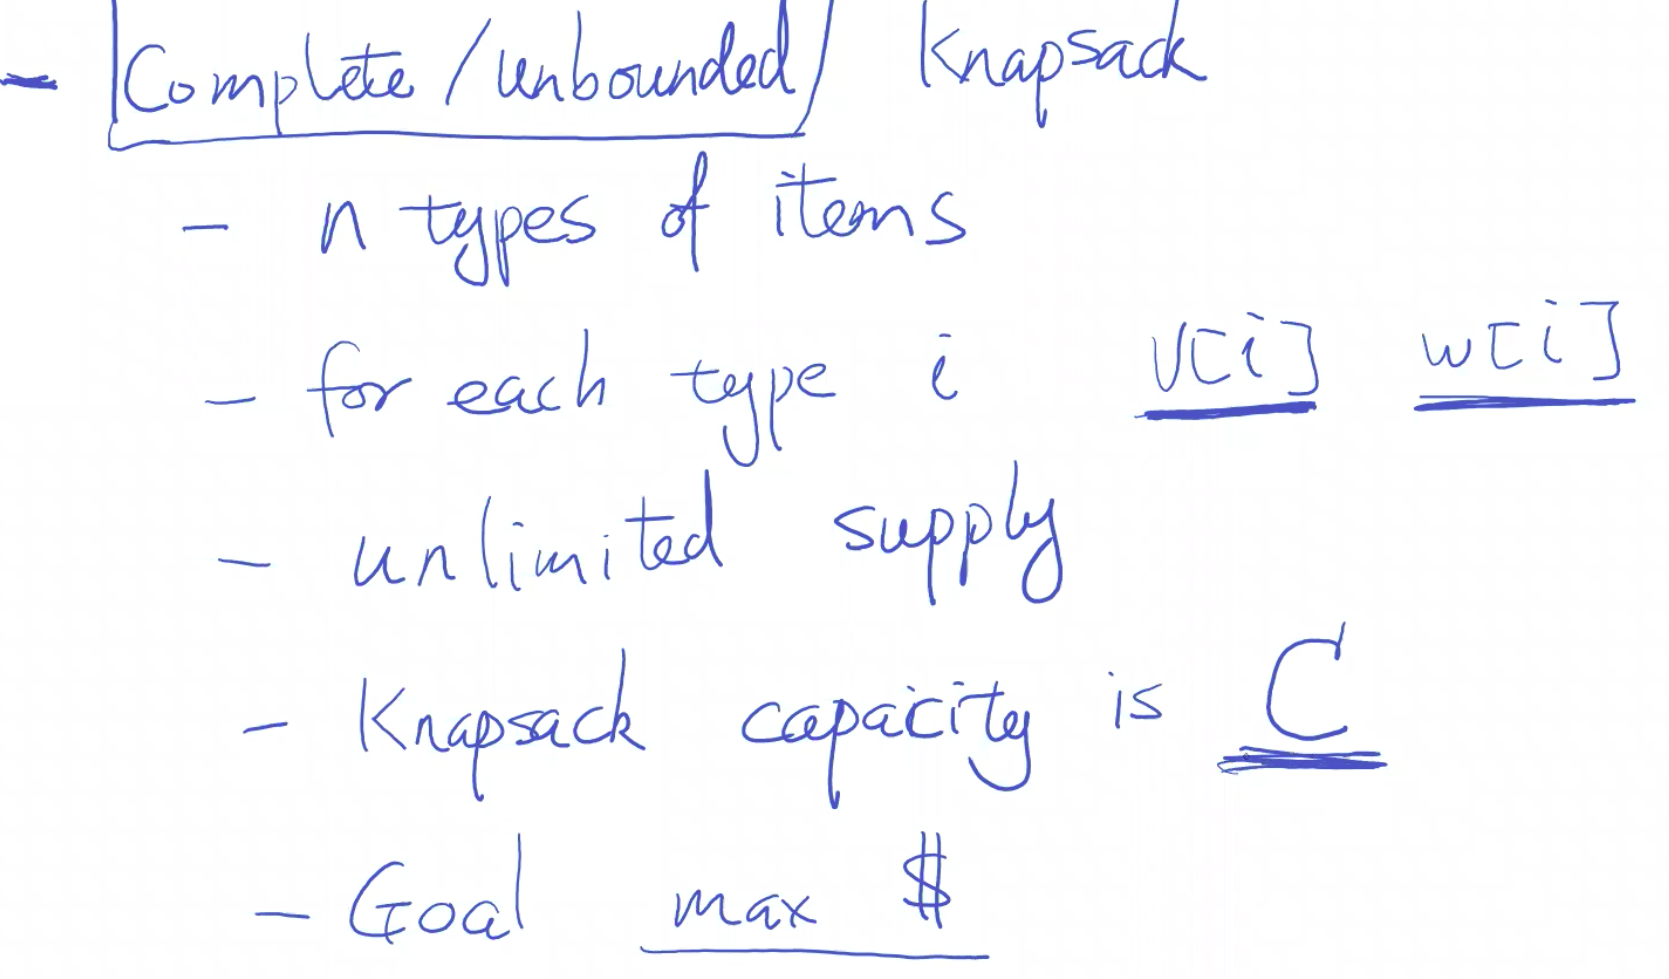 - Complete/unbounded/ Knapsack
- n types of items
- for each type i V[i] w[i]
- unlimited supply
- Knapsack capacity is C
- Goal max $